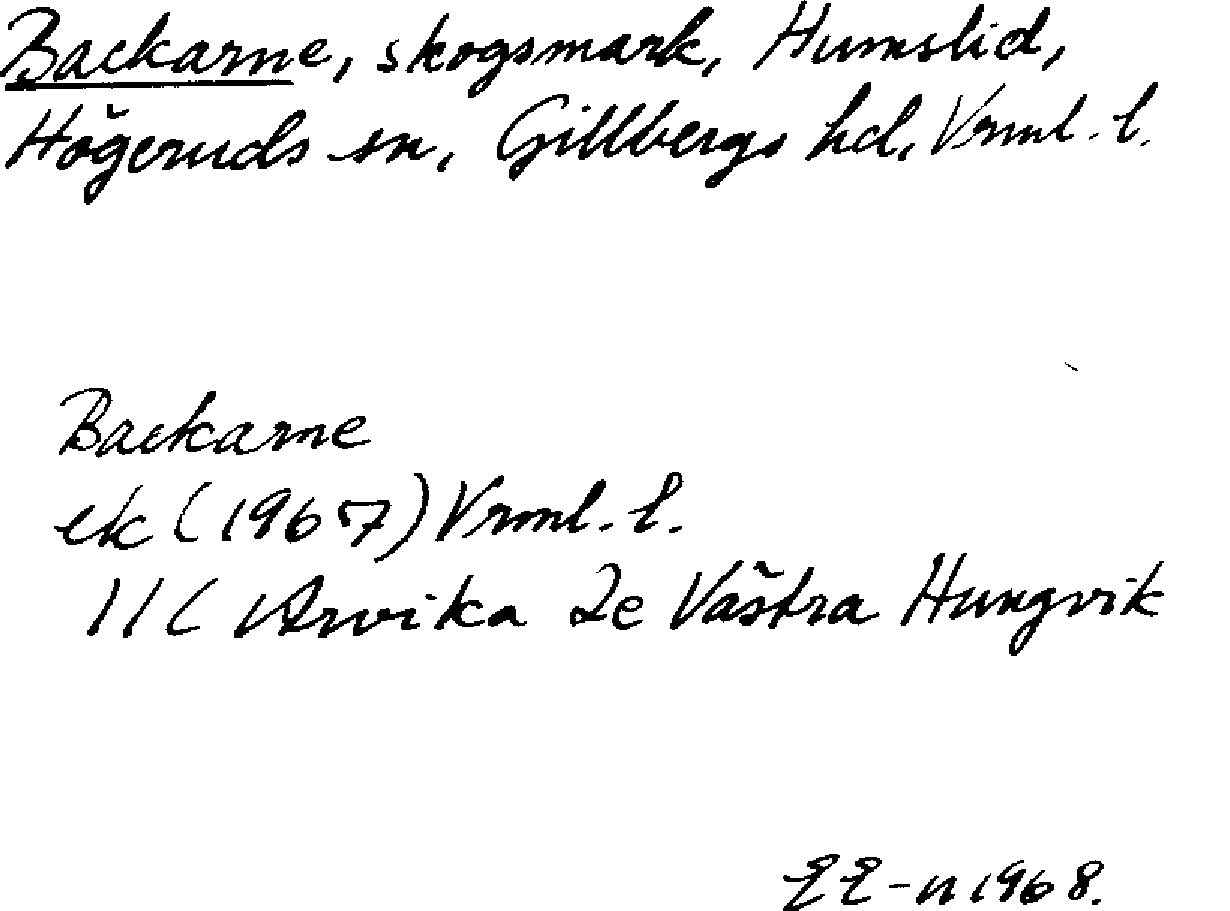 Backarne, skogsmark, Humslid,
Högeruds sn, Gillbergs hd, Vrml. l.
Backarne
ek (1967) Vrml. l.
11C Arvika 2e Västra Hungvik
EE-n 1968.